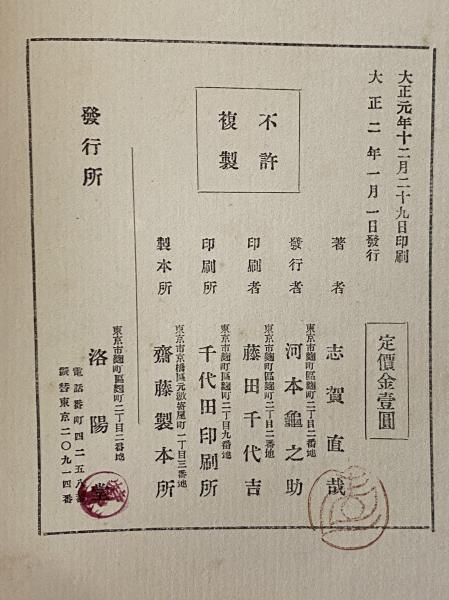 大正元年十二月二十九日印刷
大正二年一月一日發行
定價金壹圓
不許
複製
著者 志賀直哉
東京市麹町區麹町二丁目二番地
發行者 河本龜之助
東京市麹町區麹町二丁目二番地
印刷者 藤田千代吉
東京市麹町區麹町二丁目九番地
印刷所 千代田印刷所
東京市京橋區元數寄屋町一丁目三番地
製本所 齋藤製本所
發行所
東京市麹町區麹町二丁目二番地
洛陽堂
電話番町四二五八番
振替東京二〇九一四番